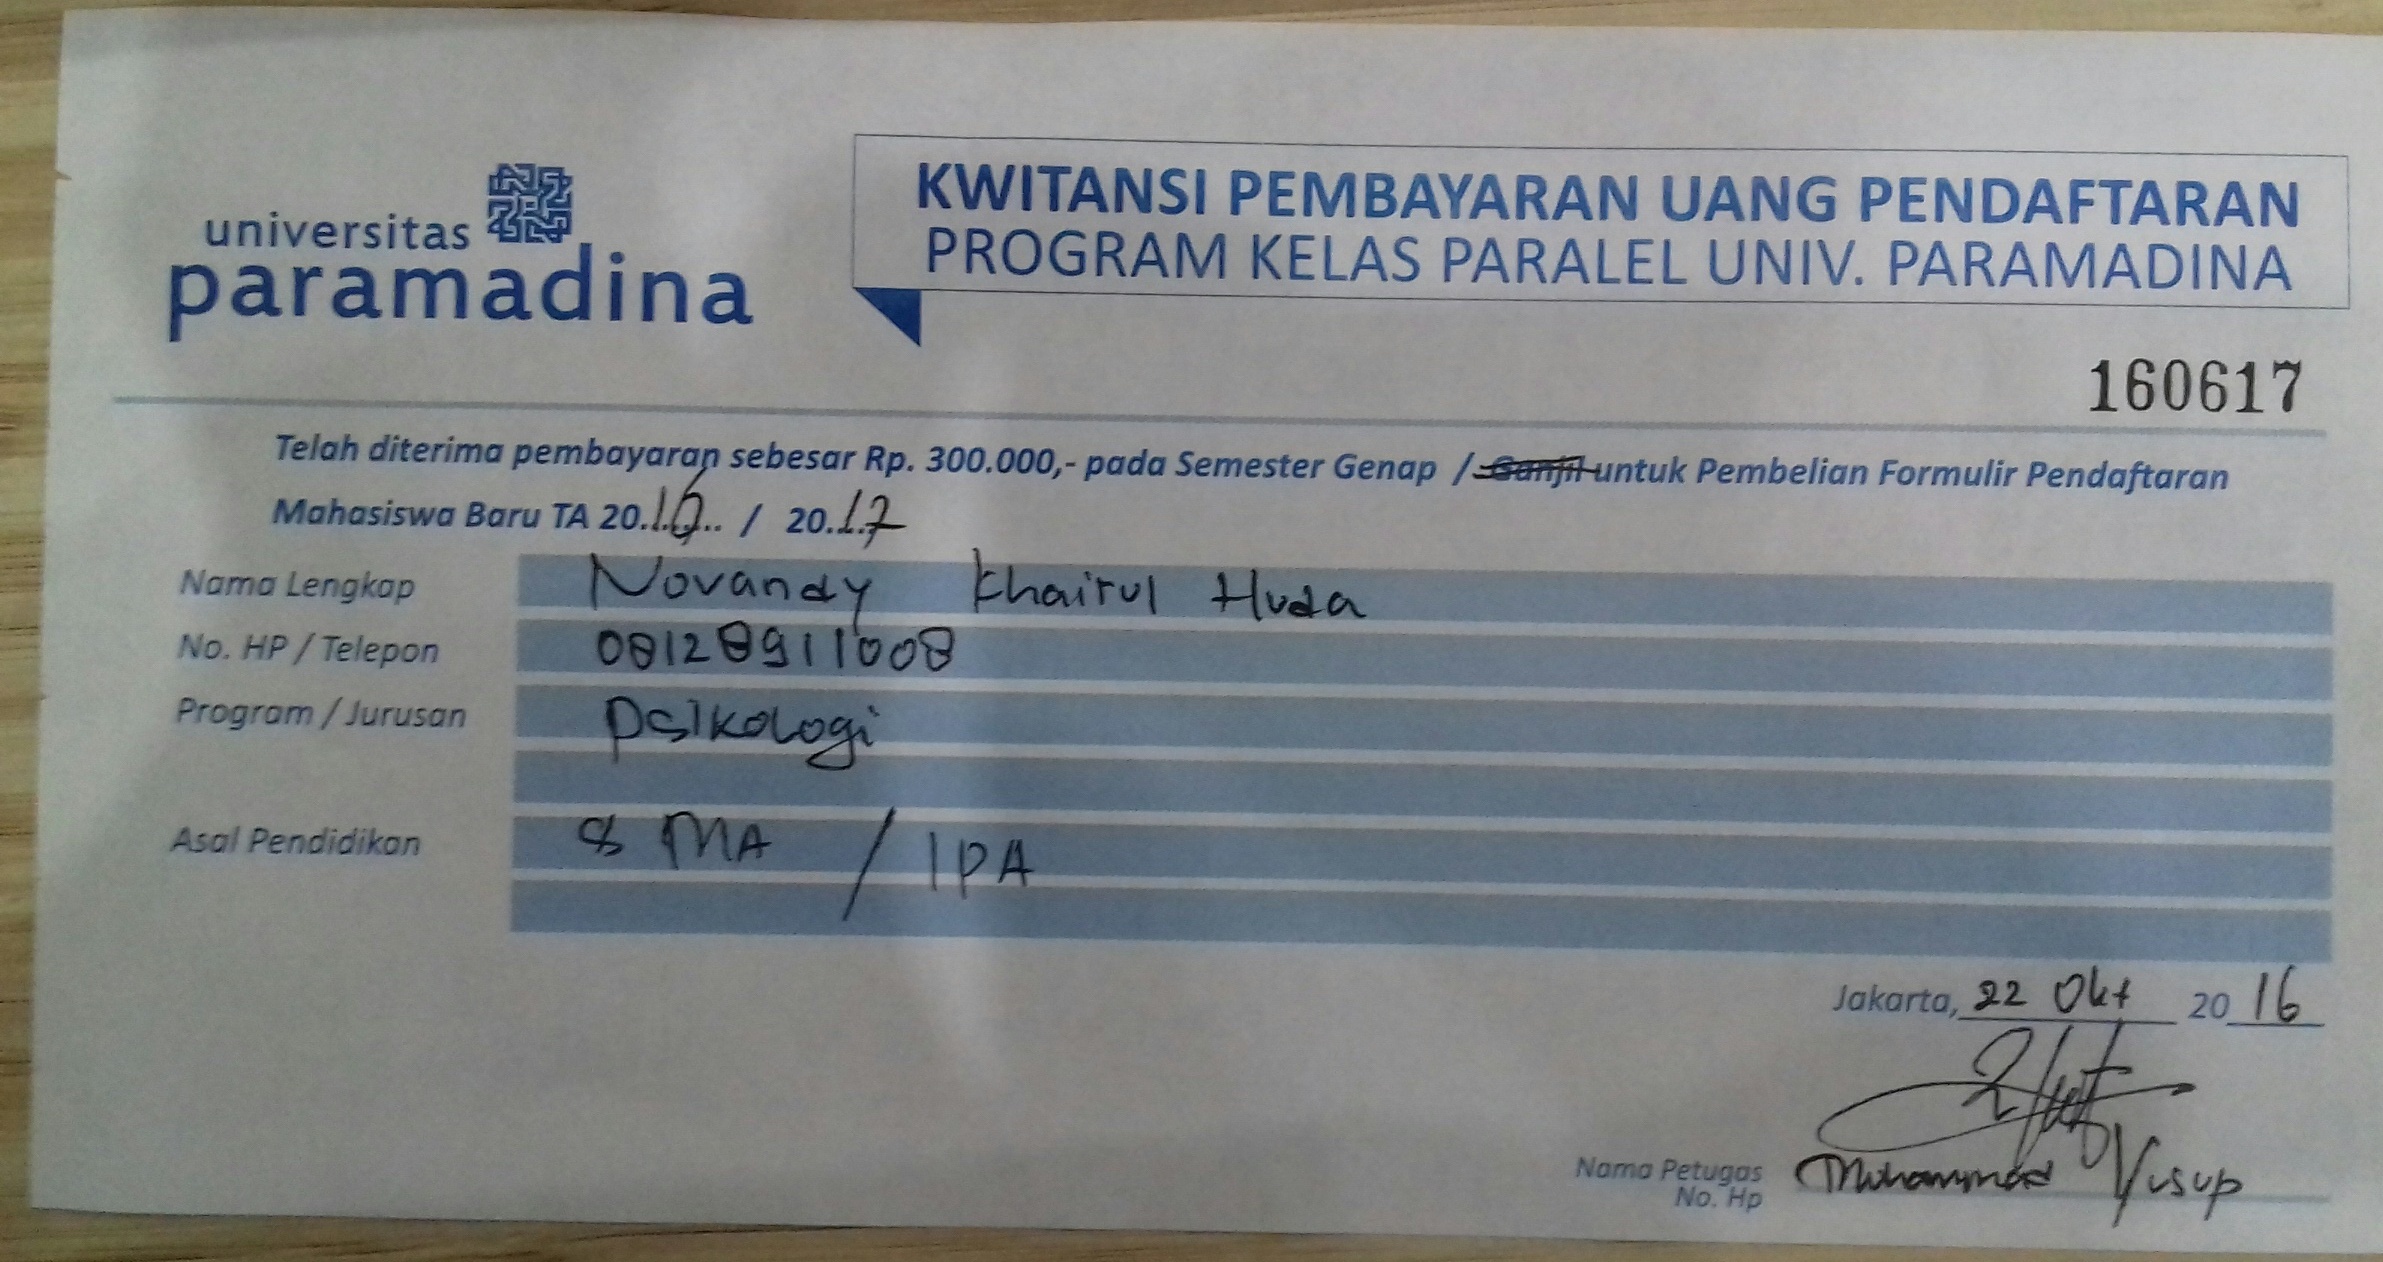 universitas
paramadina
KWITANSI PEMBAYARAN UANG PENDAFTARAN
PROGRAM KELAS PARALEL UNIV. PARAMADINA
160617
Telah diterima pembayaran sebesar Rp. 300.000,- pada Semester Genap / Ganjil untuk Pembelian Formulir Pendaftaran
Mahasiswa Baru TA 20.16.. / 20.17
Nama Lengkap Novandy Khairul Huda
No. HP / Telepon 08128911008
Program / Jurusan Psikologi
Asal Pendidikan SMA / IPA
Jakarta, 22 Okt 20 16
Nama Petugas Muhammad Yusup
No. Hp